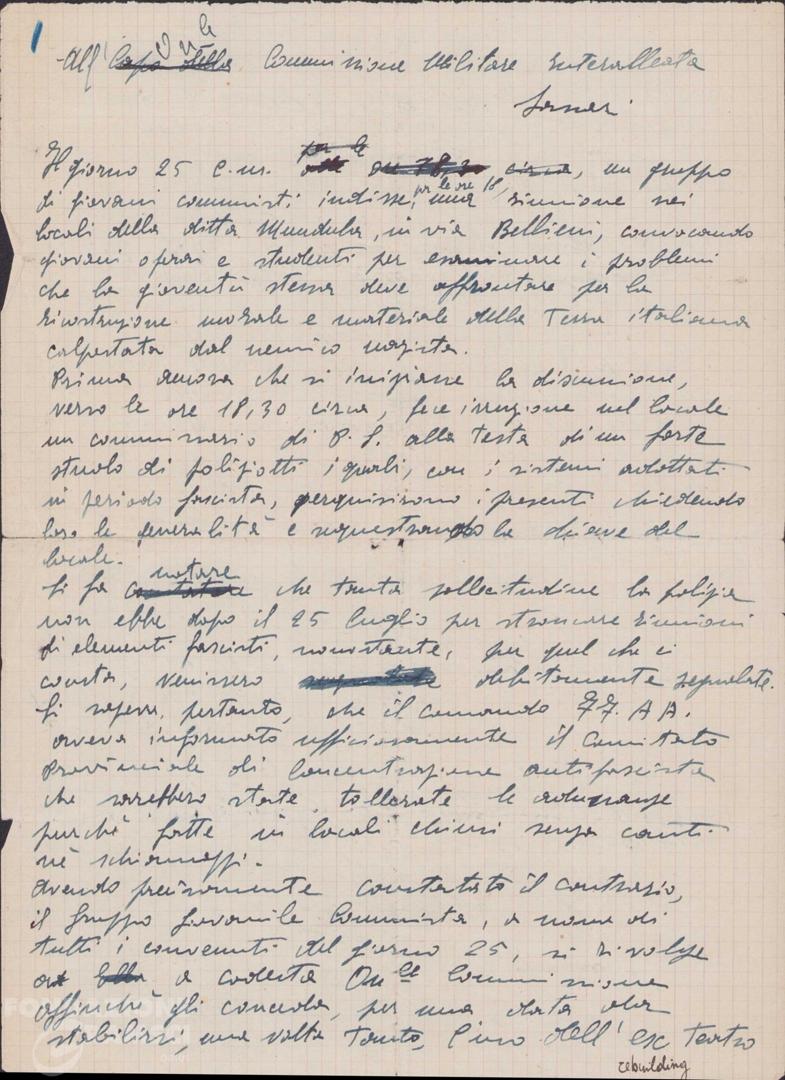 On.le
All' Capo della Commissione Militare Interalleata
Sassari
per le
Il giorno 25 c.m. alle ore 18,30 circa, un gruppo
per le ore 18,
di giovani comunisti indisse, una riunione nei
locali della ditta Mundula, in via Bellieni, convocando
giovani operai e studenti per esaminare i problemi
che la gioventù stessa deve affrontare per la
ricostruzione morale e materiale della Terra italiana
calpestata dal nemico nazista.
Prima ancora che si iniziasse la discussione,
verso le ore 18,30 circa, fece irruzione nel locale
un commissario di P.S. alla testa di un forte
stuolo di poliziotti i quali, con i sistemi adottati
in periodo fascista, perquisirono i presenti chiedendo
loro le generalità e sequestrando la chiave del
locale.
notare
Si fa constatare che tanta sollecitudine la polizia
non ebbe dopo il 25 luglio per stroncare riunioni
di elementi fascisti, nonostante, per quel che ci
consta, venissero debitamente segnalate.
Si sapeva, pertanto, che il comando FF. AA.
aveva informato ufficiosamente il Comitato
Provinciale di Concentrazione antifascista
che sarebbero state tollerate le adunanze
purchè fatte in locali chiusi senza canti
nè schiamazzi.
Avendo precisamente constatato il contrario,
il Gruppo Giovanile Comunista, a nome di
tutti i convenuti del giorno 25, si rivolge
a codesta On.le Commissione
affinchè gli conceda, per una data da
stabilirsi, una volta tanto, l'uso dell'ex Teatro
rebuilding